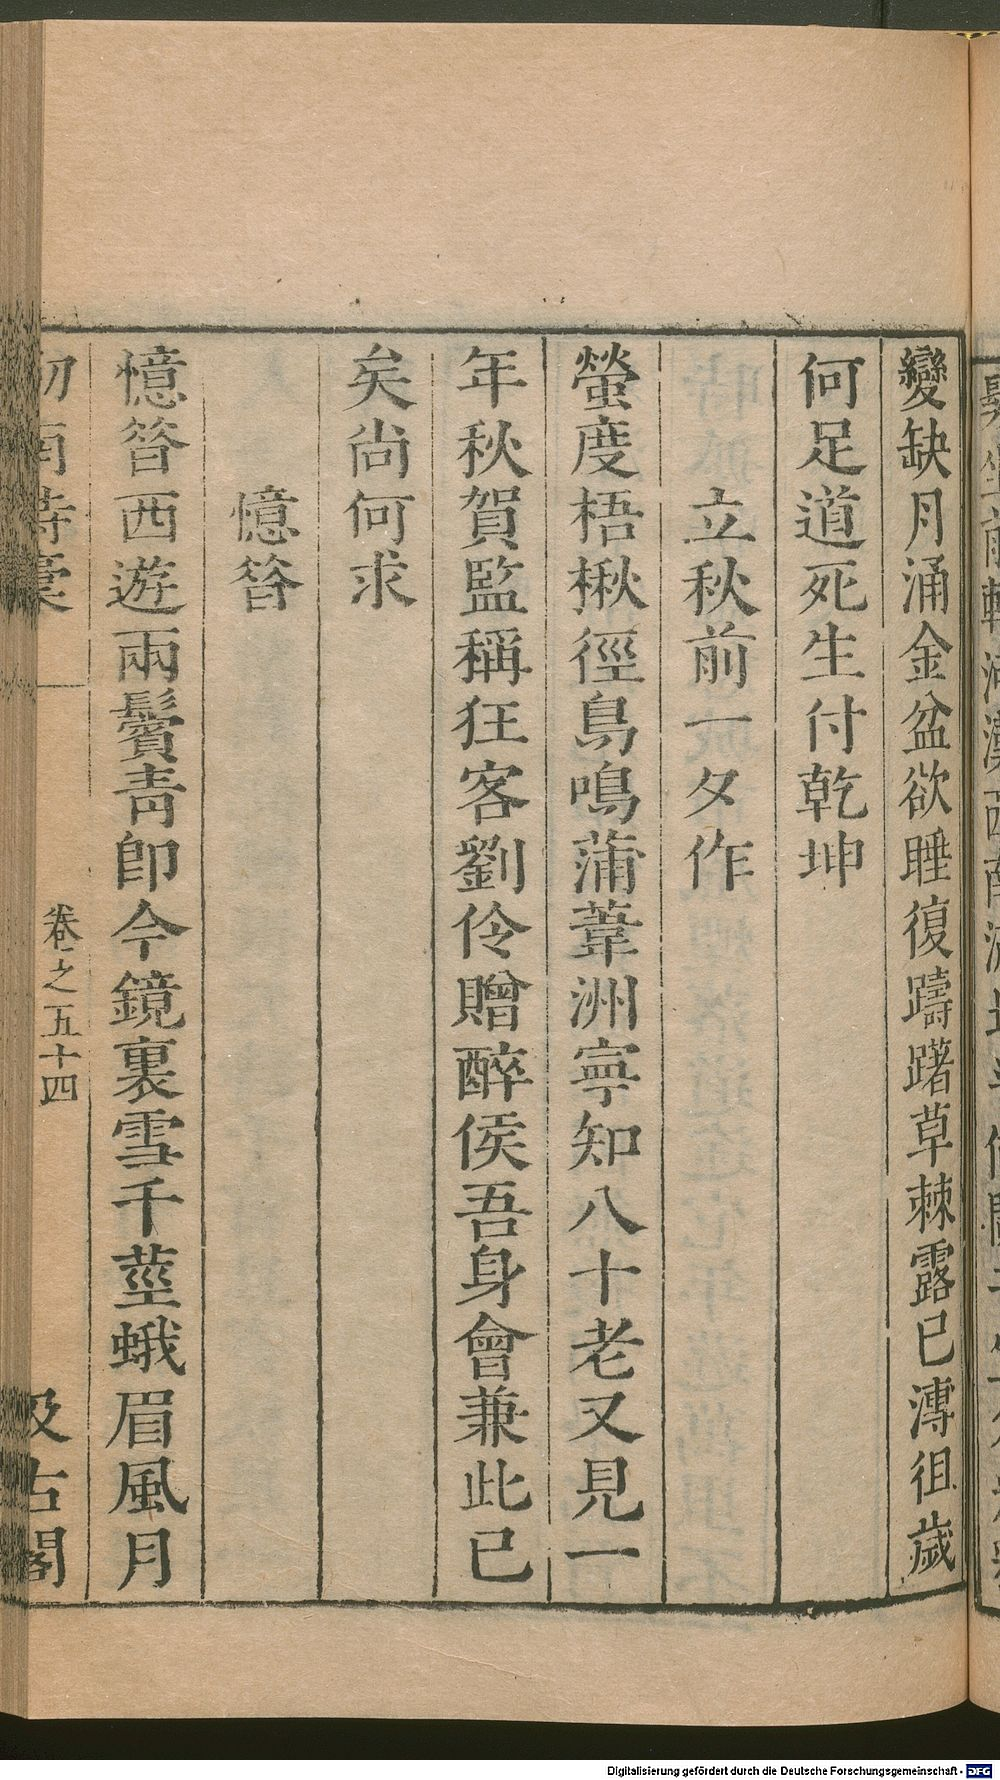 變缺月涌金盆欲睡復躊躇草棘露已漙徂歲
何足道死生付乾坤
立秋前一夕作
螢度梧楸徑鳥鳴蒲葦洲寧知八十老又見一
年秋賀監稱狂客劉伶贈醉侯吾身會兼此已
矣尚何求
憶昝
憶昝西遊兩鬢青卽今鏡裏雪千莖蛾眉風月
劒南詩稾
卷之五十四
汲古閣
Digitalisierung gefördert durch die Deutsche Forschungsgemeinschaft - DFG